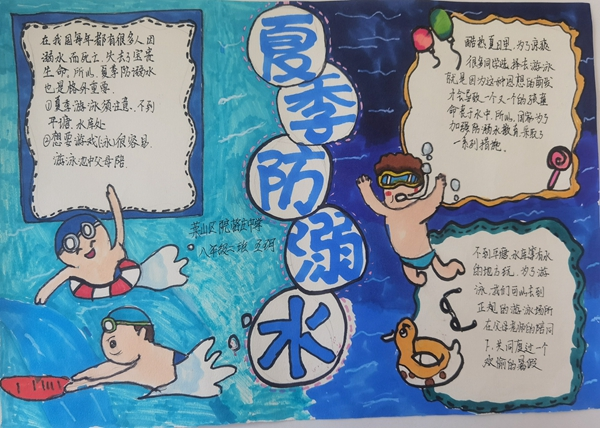 夏季防溺水
在我国每年都有很多人因
溺水而死亡,失去了宝贵
生命,所以,夏季防溺水
也是格外重要.
①夏季游泳须注意,不到
平塘,水库处
②想要游戏(泳)很容易,
游泳池中父母陪
八年级
酷热夏日里,为了凉爽
很多同学选择去游泳
就是因为这种思想的萌发
才会导致一个又一个的
命丧于水中.所以,国家为了
加强防溺水教育,采取了
一系列措施.
不到平塘,水库等有水
的地方玩,为了游
泳,我们可以去到
正规的游泳场所
在父母老师的陪同
下,共同度过一个
欢愉的暑假